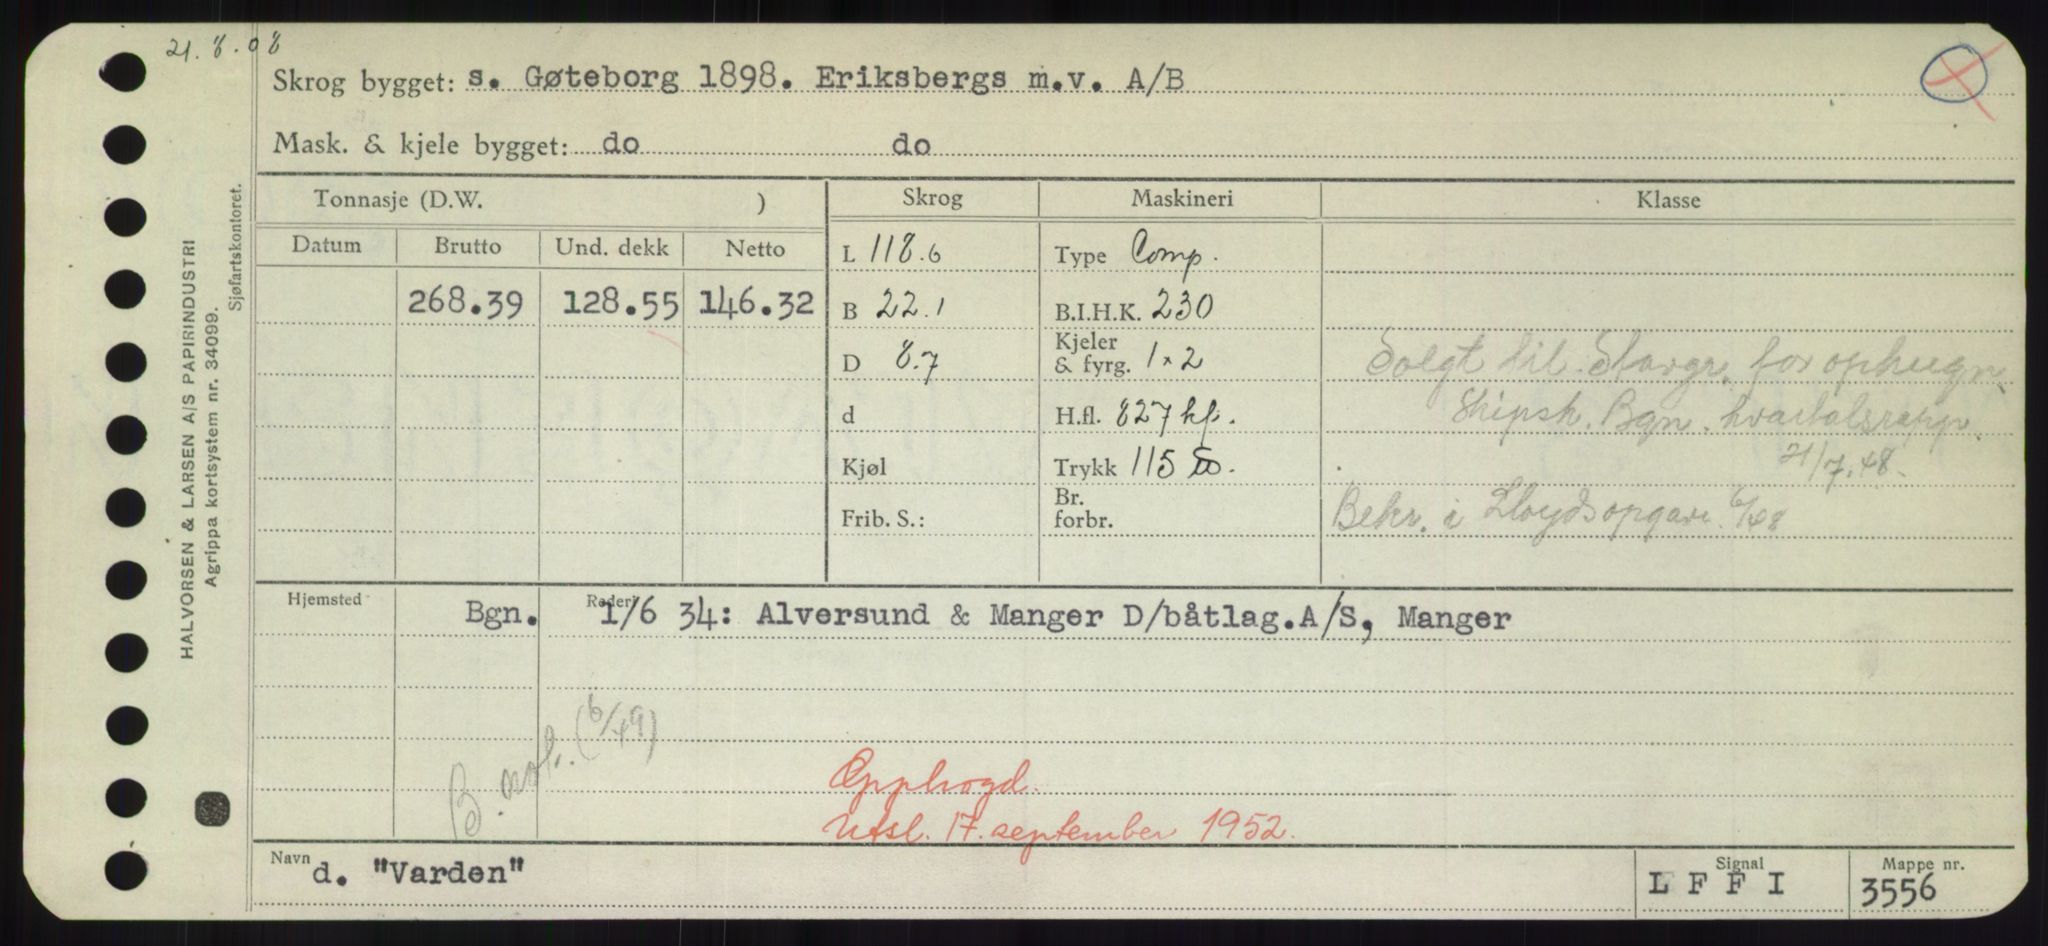 21.8.08
Skrog bygget: s. Gøteborg 1898. Eriksbergs m.v. A/B
Mask. & kjele bygget: do do
HALVORSEN & LARSEN A/S PAPIRINDUSTRI
Agrippa kortsystem nr. 34099.
Sjøfartskontoret.
Tonnasje (D.W. ) Skrog Maskineri Klasse
Datum Brutto Und. dekk Netto L 118.6 Type Comp.
268.39 128.55 146.32 B 22.1 B.I.H.K. 230
D 8.7 Kjeler & fyrg. 1 x 2 Solgt til Stavgr. for ophugn.
d H.fl. 827 kf. Skipsk. Bgn. kvartalsrapp.
Kjøl Trykk 115 21/7.48.
Frib. S.: Br. forbr. Bekr. i Lloydsopgave
Hjemsted Bgn. Rederi 1/6 34: Alversund & Manger D/båtlag.A/S, Manger
B. not. (6/49)
Opphogd.
Utsl. 17. september 1952.
Navn d. "Varden" Signal L F F I Mappe nr. 3556